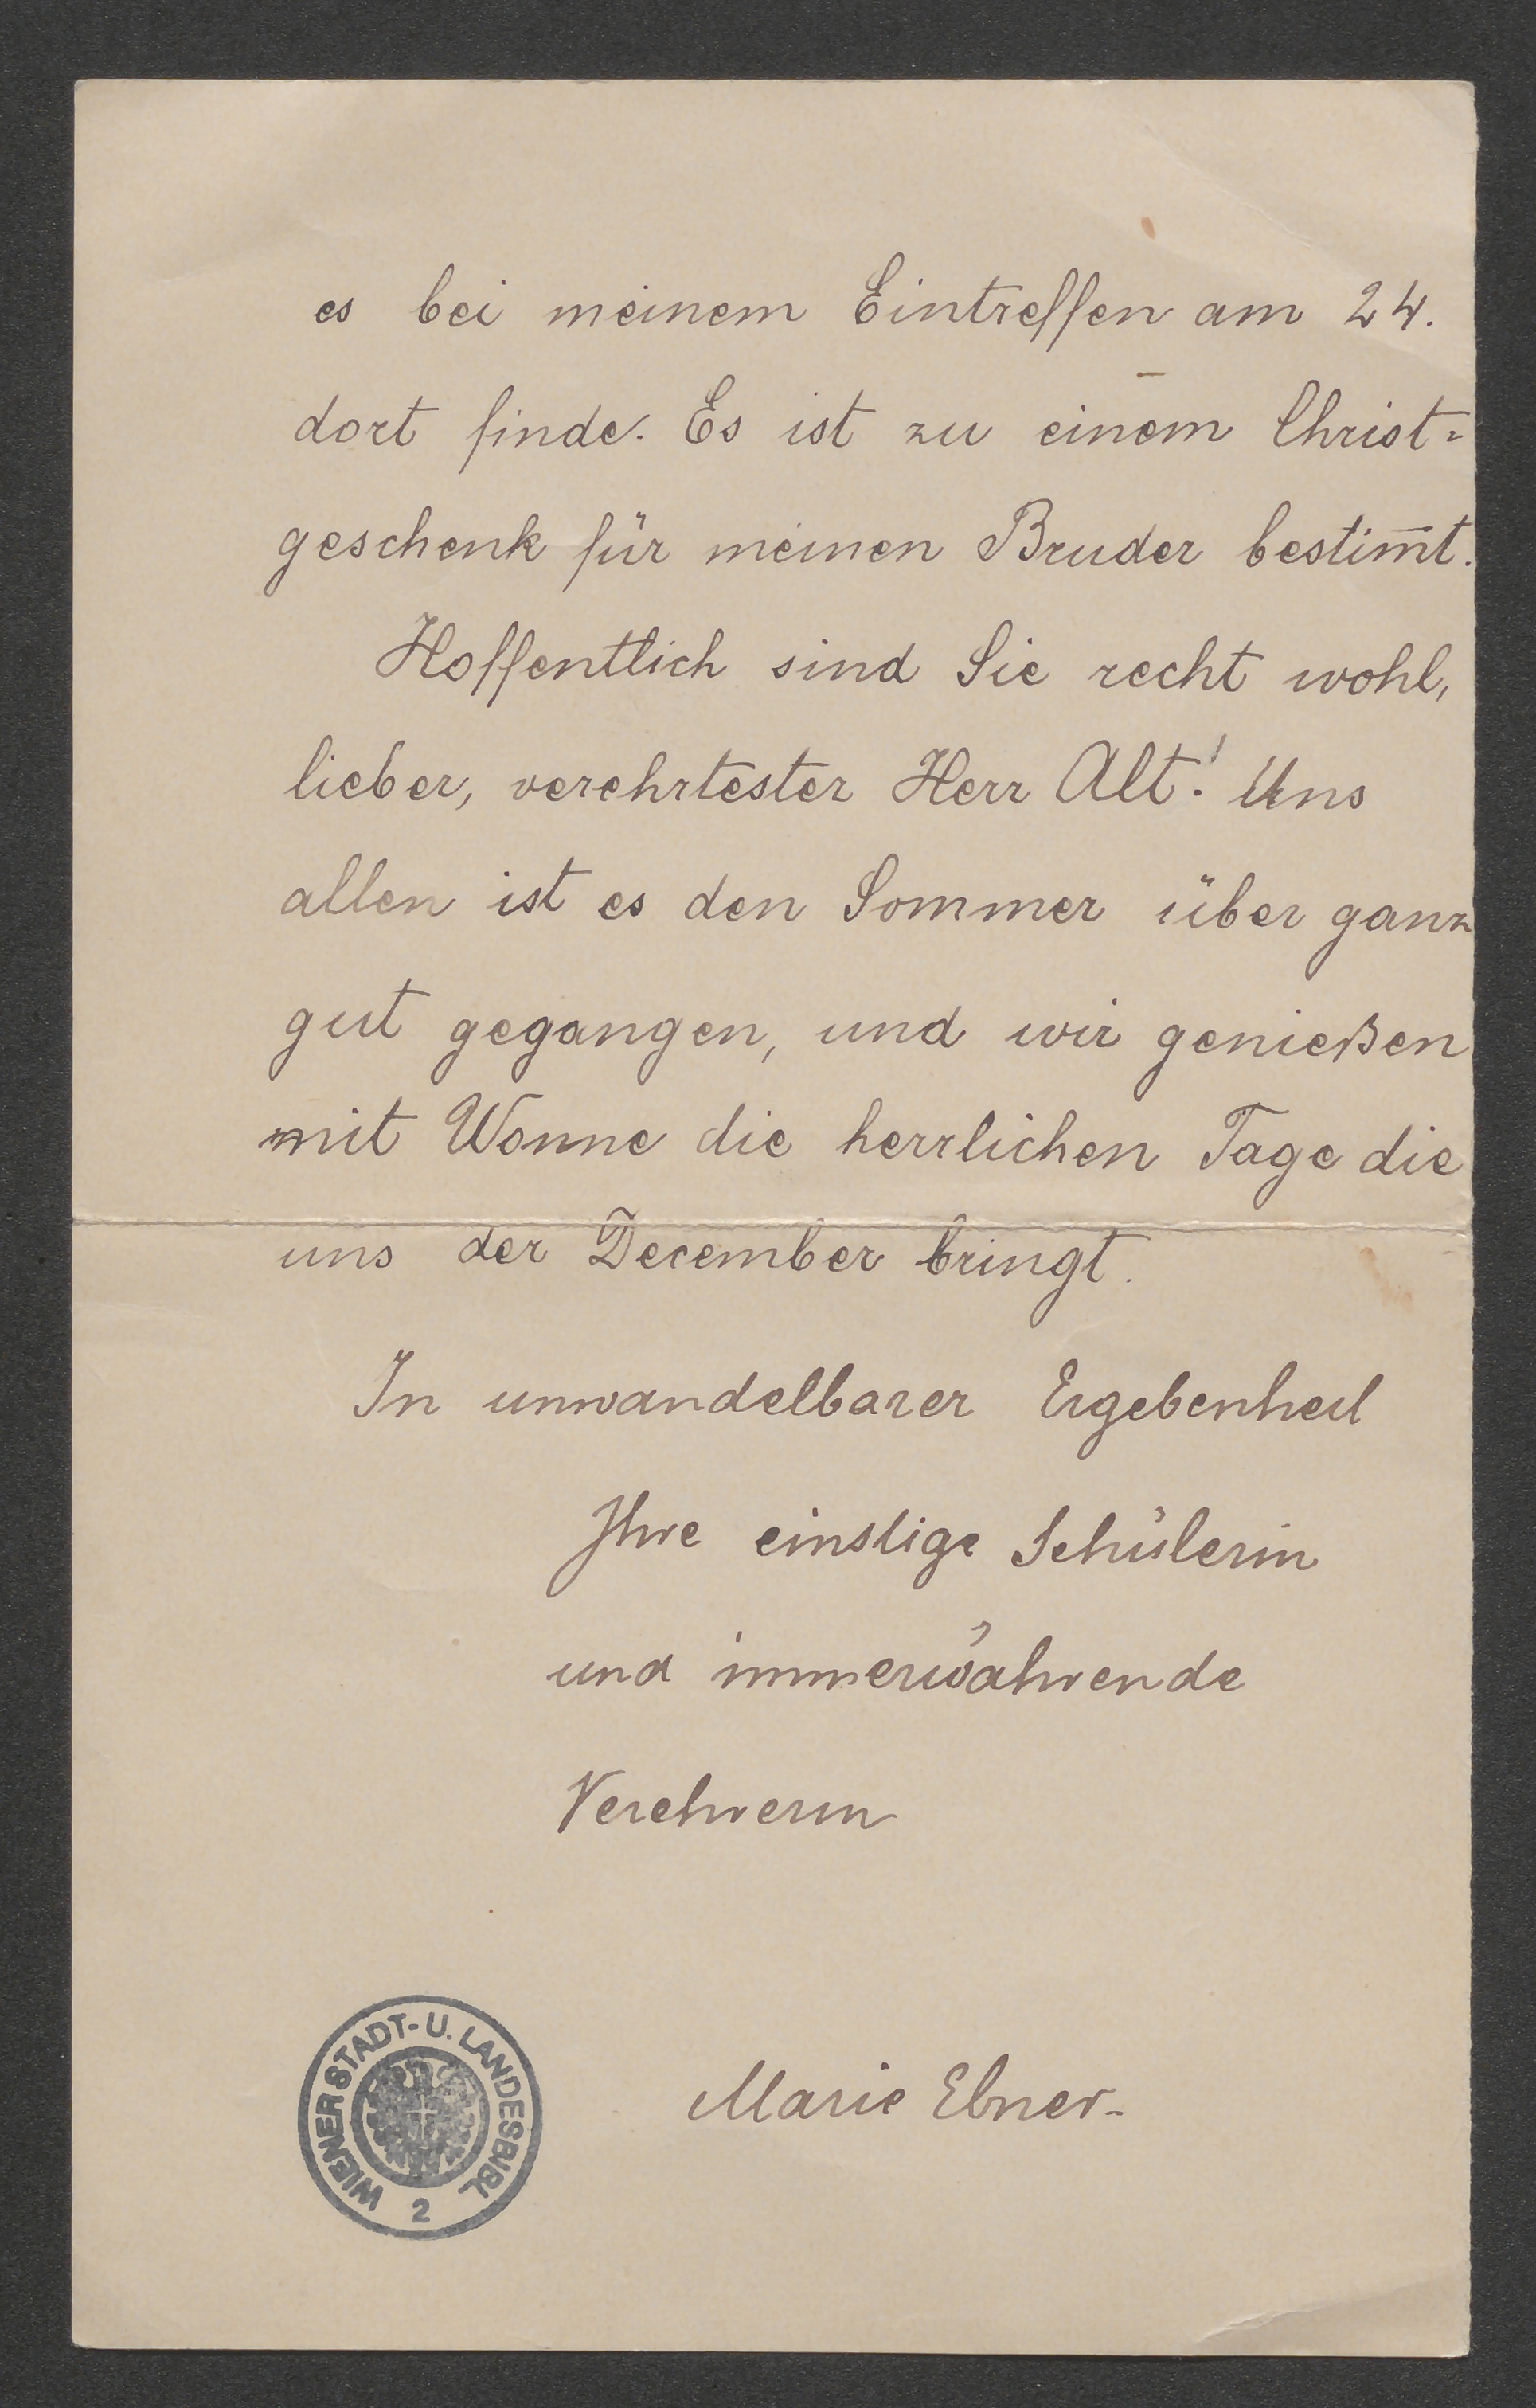 es bei meinem Eintreffen am 24.
dort finde. Es ist zu einem Christ=
geschenk für meinen Bruder bestim̄t.
Hoffentlich sind Sie recht wohl,
lieber, verehrtester Herr Alt! Uns
allen ist es den Sommer über ganz
gut gegangen, und wir genießen
mit Wonne die herrlichen Tage die
uns der December bringt.
In unwandelbarer Ergebenheit
Ihre einstige Schülerin
und immerwährende
Verehrerin
Marie Ebner-
WIENER STADT- U. LANDESBIBL
2